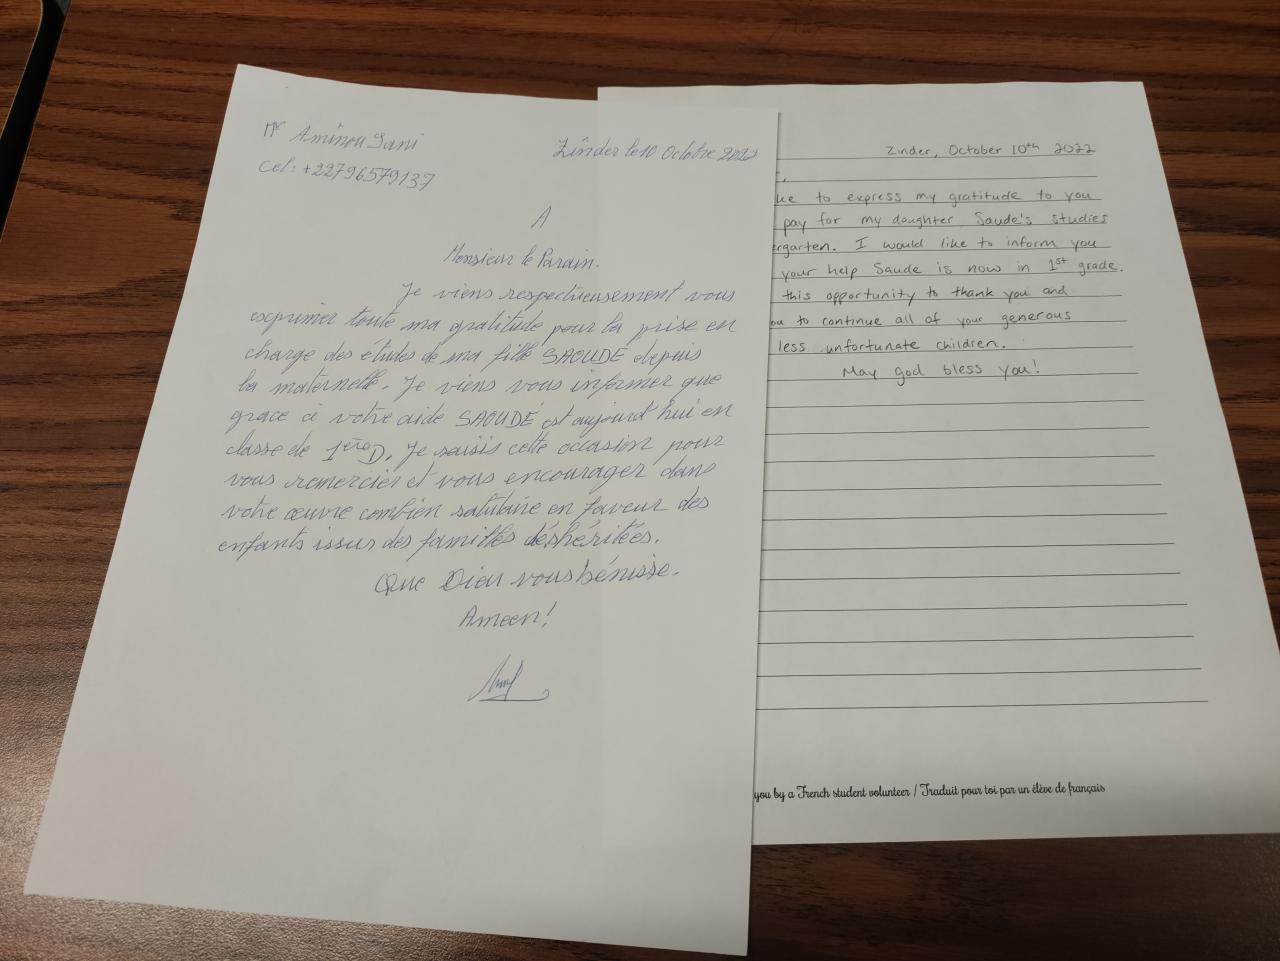 Mr Aminou Sani
Cel: +22796579137
Zinder le 10 Octobre 2022
A
Monsieur le Parain.
Je viens respectieusement vous
exprimer toute ma gratitude pour la prise en
charge des études de ma fille SAOUDÉ depuis
la maternelle. Je viens vous informer que
grace à votre aide SAOUDÉ est aujourd'hui en
classe de 1ère D. Je saisis cette occasion pour
vous remercier et vous encourager dans
votre œuvre combien salutaire en faveur des
enfants issus des familles déshéritées.
Que Dieu vous bénisse.
Ameen!
Zinder, October 10th 2022
to express my gratitude to you
pay for my daughter Saude's studies
I would like to inform you
your help Saude is now in 1st grade.
this opportunity to thank you and
to continue all of your generous
less unfortunate children.
May god bless you!
you by a French student volunteer / Traduit pour toi par un élève de français